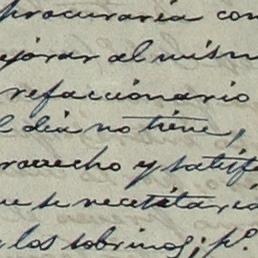 procuraria con
ejorar al mism
refaccionario
l dia no tiene,
rovecho y satisf
ue se necesitaria
los sobrinos; pr.